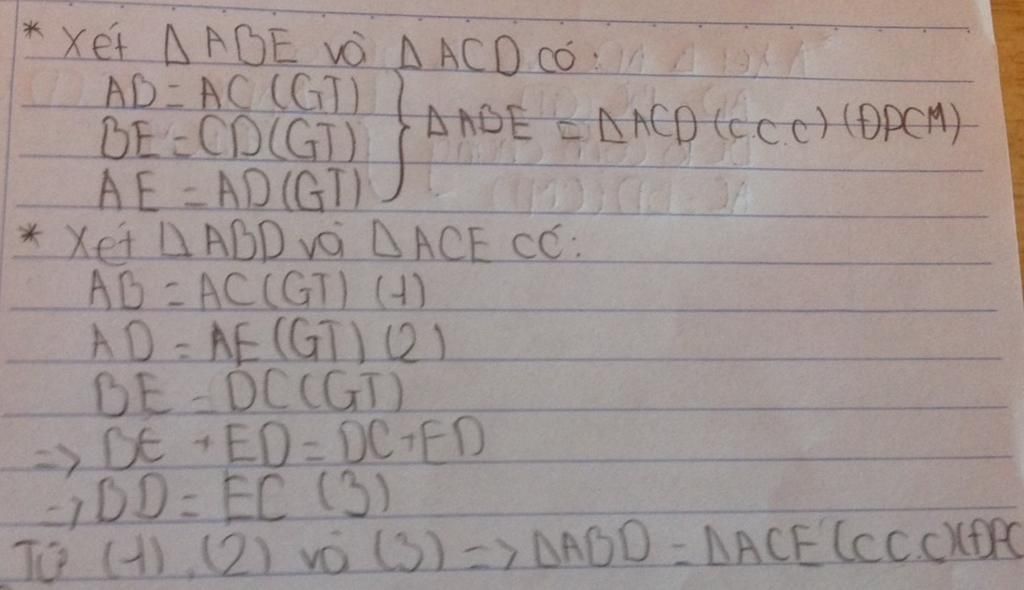 * Xét ΔABE và ΔACD có:
AB = AC (GT)
BE = CD (GT)
AE = AD (GT)
} ΔABE = ΔACD (c.c.c) (ĐPCM)
* Xét ΔABD và ΔACE có:
AB = AC (GT) (1)
AD = AE (GT) (2)
BE = DC (GT)
=> BE + ED = DC + ED
=> BD = EC (3)
Từ (1), (2) và (3) => ΔABD = ΔACE (c.c.c) (ĐPC